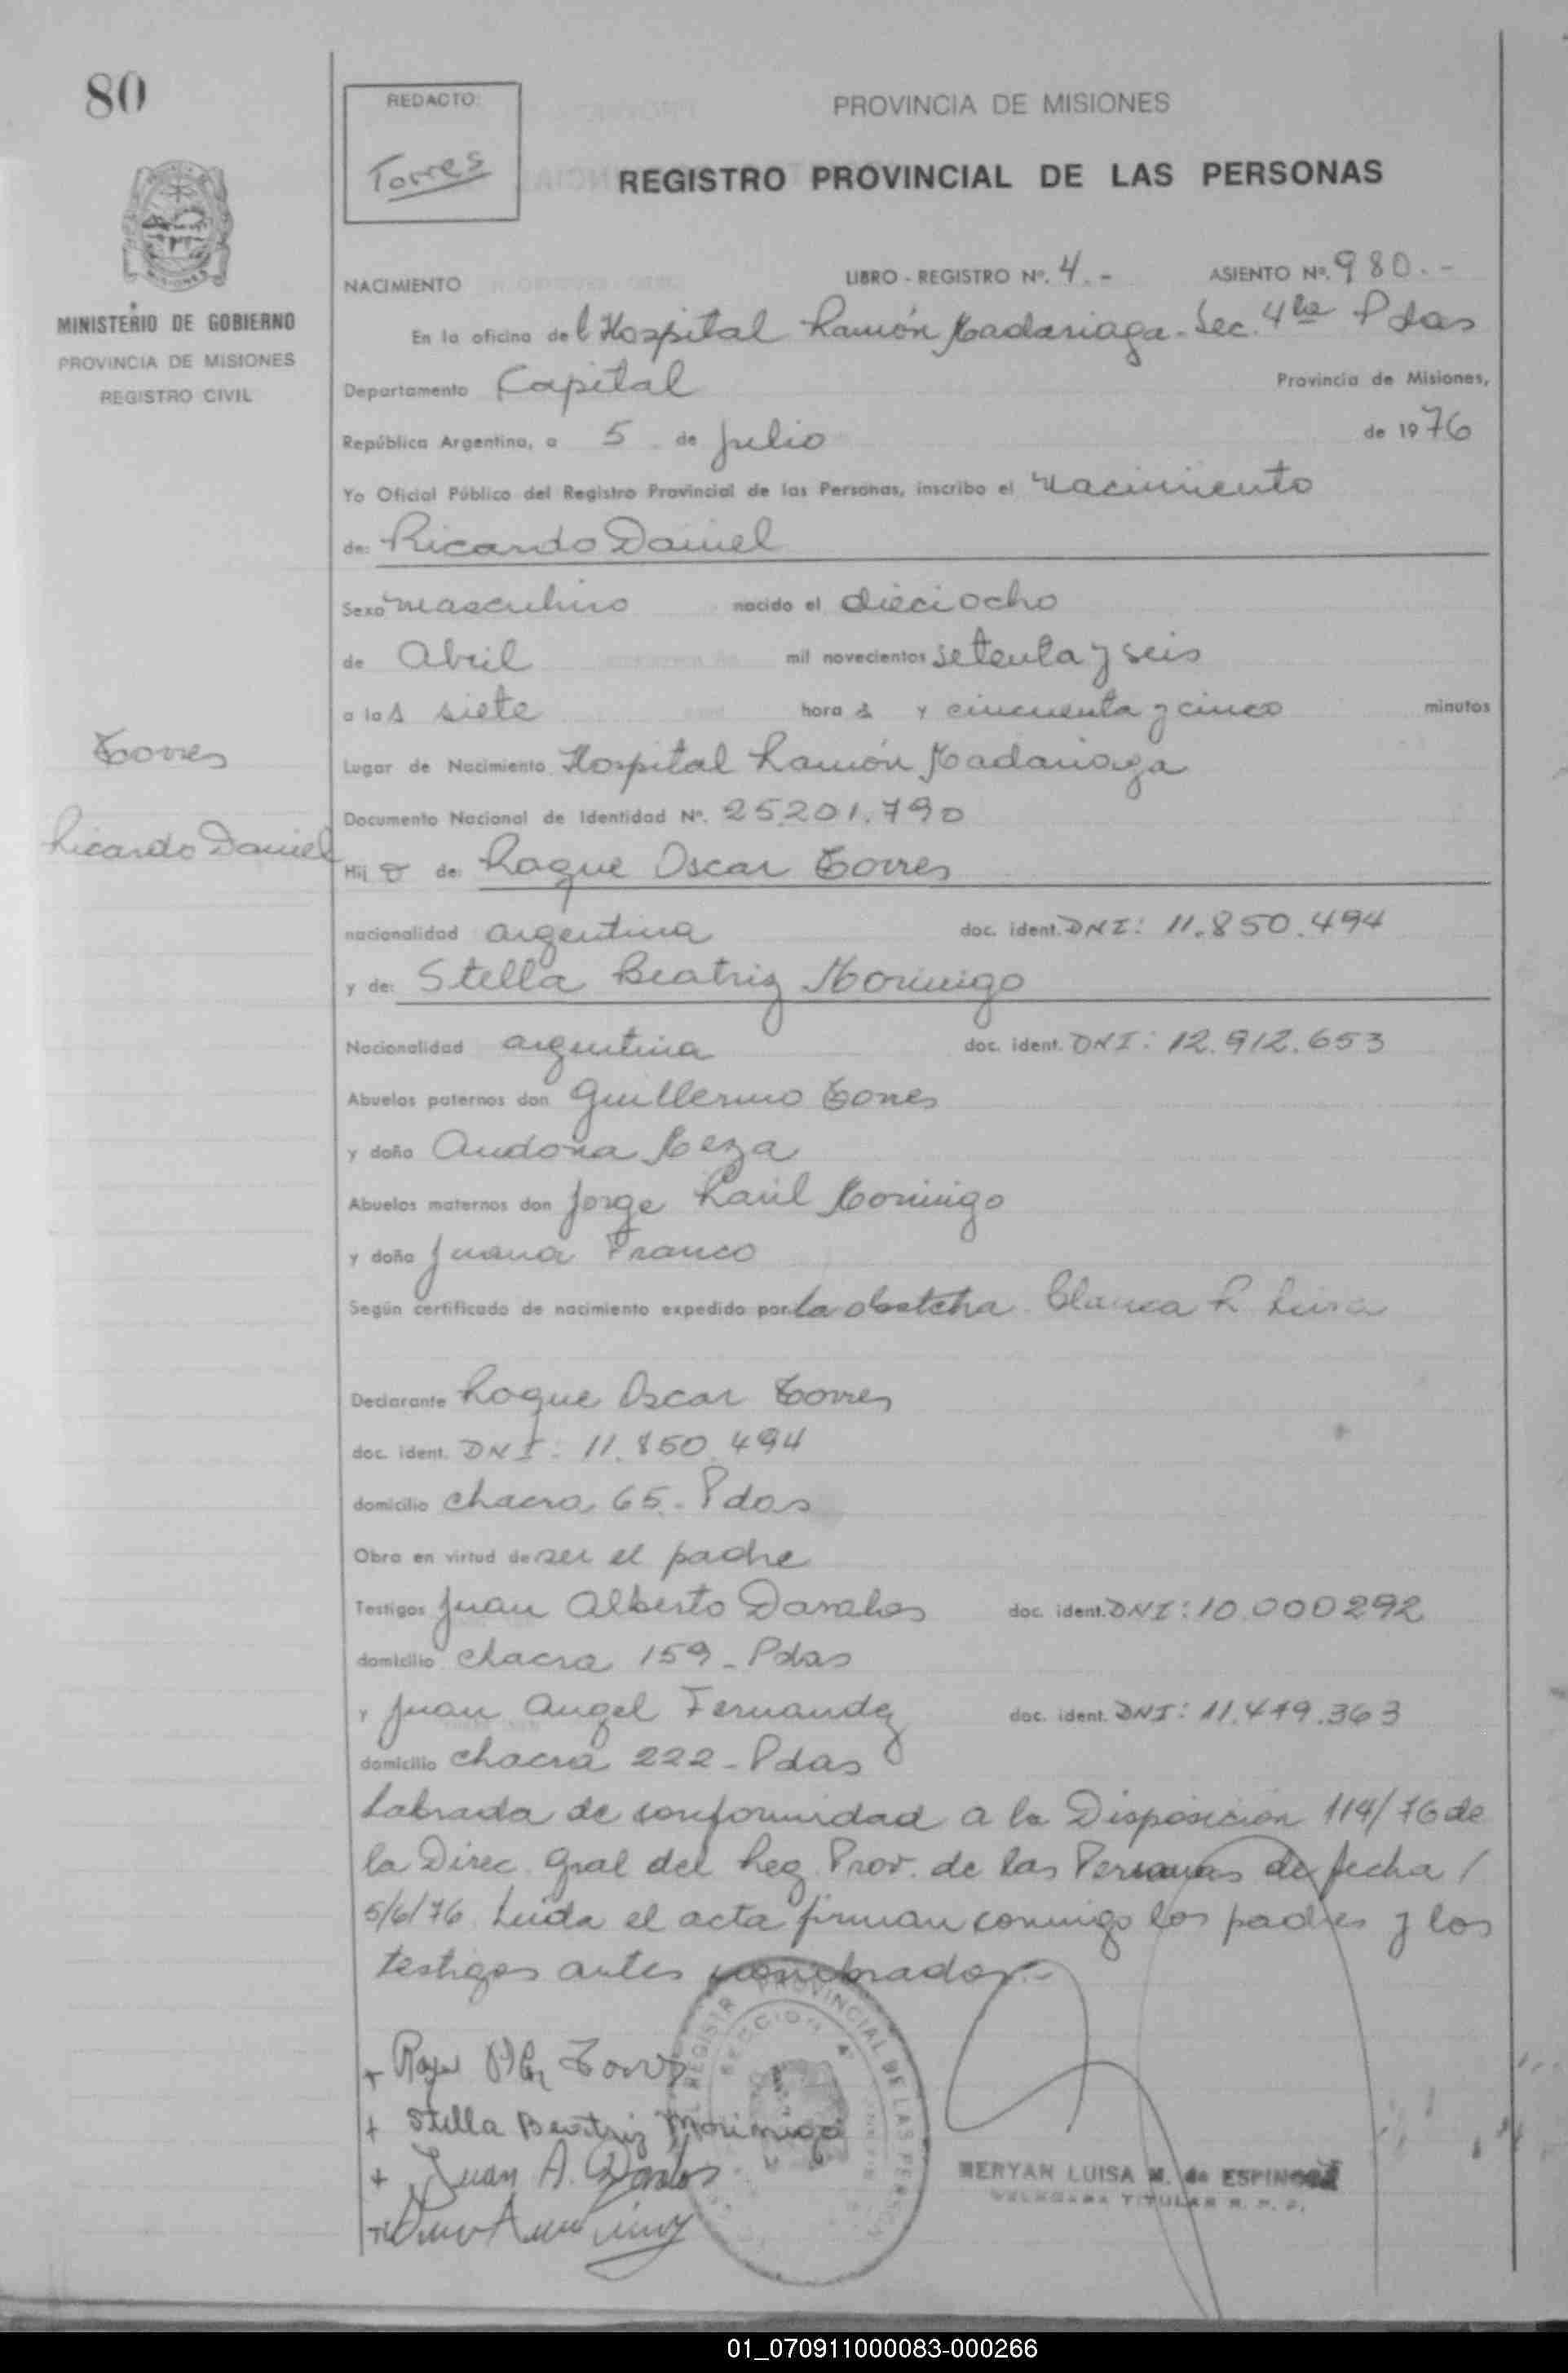 80
REDACTO:
Torres
PROVINCIA DE MISIONES
REGISTRO PROVINCIAL DE LAS PERSONAS
MINISTERIO DE GOBIERNO
PROVINCIA DE MISIONES
REGISTRO CIVIL
NACIMIENTO LIBRO - REGISTRO Nº. 4.- ASIENTO Nº. 980.-
En la oficina del Hospital Ramón Madariaga - Sec. 4ta Pdas
Departamento Capital Provincia de Misiones,
República Argentina, a 5 de Julio de 1976
Yo Oficial Público del Registro Provincial de las Personas, inscribo el nacimiento
de: Ricardo Daniel
Sexo masculino nacido el dieciocho
de Abril mil novecientos setenta y seis
a las siete horas y cincuenta y cinco minutos
Torres
Lugar de Nacimiento Hospital Ramón Madariaga
Documento Nacional de Identidad Nº. 25.201.790
Ricardo Daniel
Hijo de: Roque Oscar Torres
nacionalidad argentina doc. ident. DNI: 11.850.494
y de: Stella Beatriz Morinigo
Nacionalidad argentina doc. ident. DNI: 12.912.653
Abuelos paternos don Guillermo Torres
y doña Audona Meza
Abuelos maternos don Jorge Raúl Morinigo
y doña Juana Franco
Según certificado de nacimiento expedido por la obstetra Blanca R.
Declarante Roque Oscar Torres
doc. ident. DNI: 11.850.494
domicilio chacra 65 - Pdas
Obra en virtud de ser el padre
Testigos Juan Alberto Davalos doc. ident. DNI: 10.000292
domicilio chacra 159 - Pdas
y Juan Angel Fernandez doc. ident. DNI: 11.479.363
domicilio chacra 222 - Pdas
Labrada de conformidad a la Disposición 114/76 de
la Direc. Gral del Reg. Prov. de las Personas de fecha /
5/6/76. Leída el acta firman conmigo los padres y los
testigos antes nombrados.-
REGISTR PROVINCIAL DE LAS PERSON
SECCION 4
+ Torres
+ Stella Beatriz Morinigo
+ Juan A. Davalos
MERYAN LUISA M. de ESPINOZA
DELEGADA TITULAR R. P. P.
01_070911000083-000266